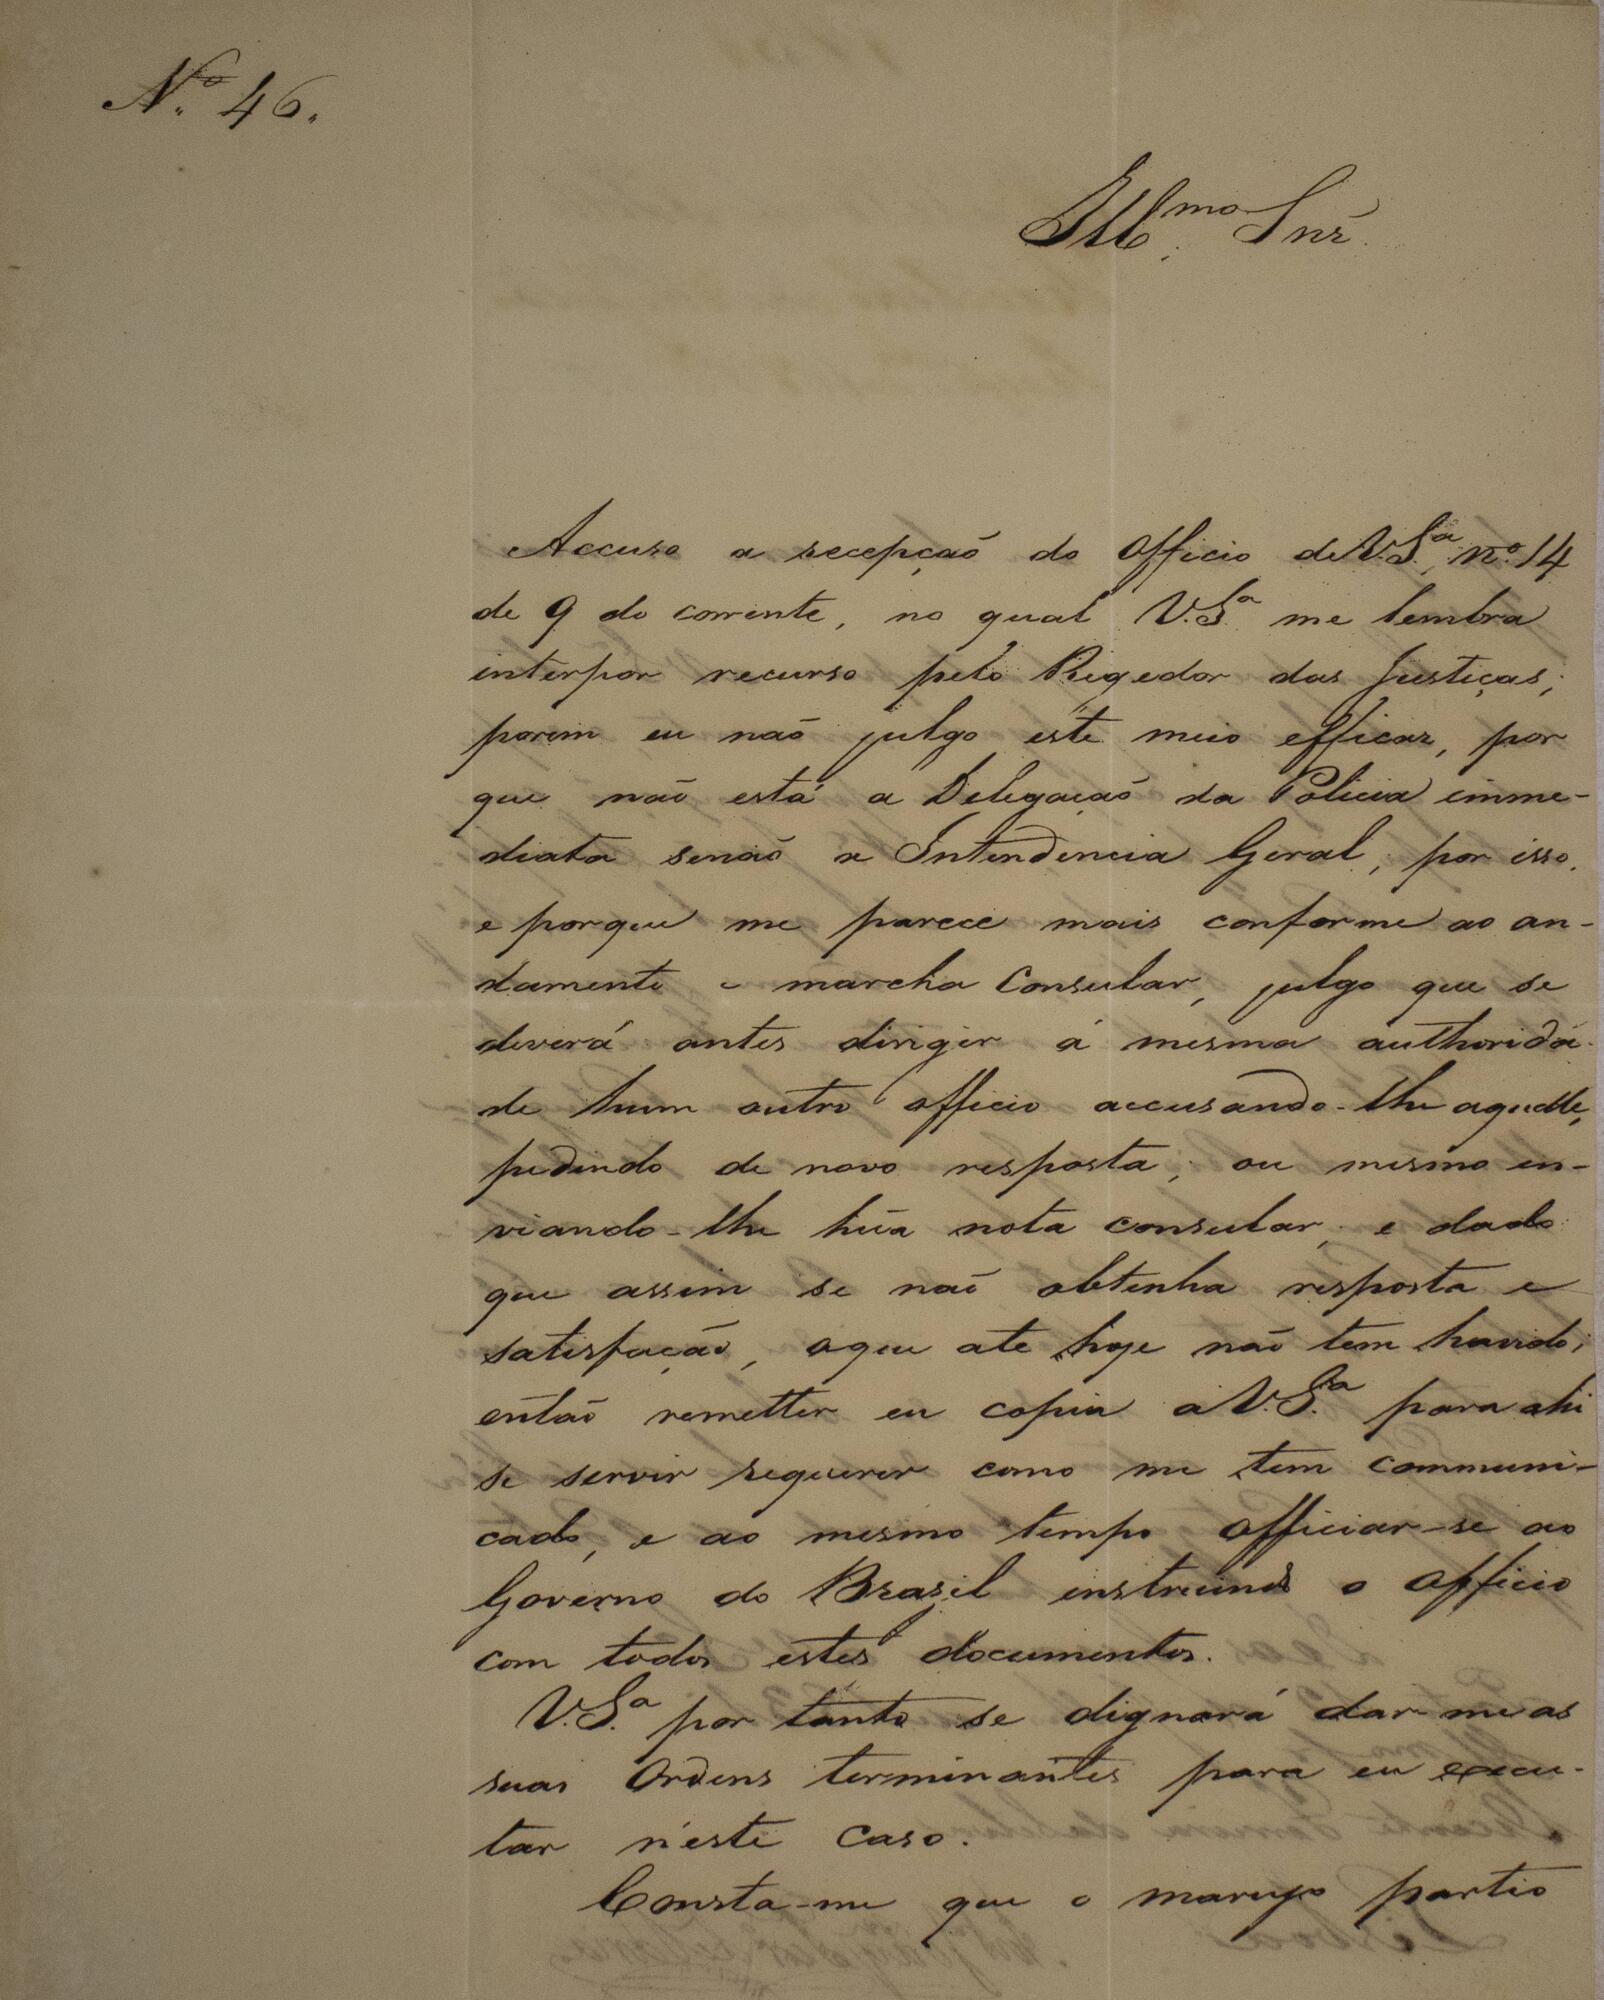 Nº 46.
Illmo. Snr.
Accuso a recepção do Officio de V.Sª nº 14
de 9 do corrente, no qual V.Sª me lembra
interpor recurso pelo Regedor das Justiças;
porem eu não julgo este meio efficaz, por
que não está a Delegação da Policia imme-
diata senão a Intendencia Geral; por isso,
e porque me parece mais conforme ao an-
damento e marcha Consular, julgo que se
deverá antes dirigir á mesma authorida-
de hum outro officio accusando-lhe aquelle,
pedindo de novo resposta; ou mesmo en-
viando-lhe hũa nota consular, e dado
que assim se não obtenha resposta e
satisfação, oque ate hoje não tem havido;
então remetter eu copia a V.Sª para ahi
se servir requerer como me tem communi-
cado, e ao mesmo tempo officiar-se ao
Governo do Brasil instruindo o officio
com todos estes documentos.
V.Sª por tanto se dignará dar-me as
suas Ordens terminantes para eu execu-
tar n'este caso.
Consta-me que o marujo partio